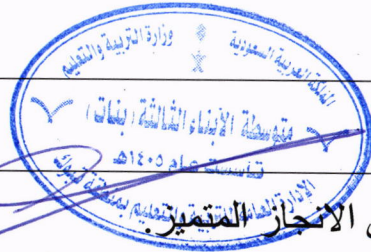 المملكة العربية السعودية
وزارة التربية والتعليم
متوسطة الأبناء الثالثة (بنات)
تأسست عام ١٤٠٥هـ
الإدارة العامة للتربية والتعليم بمنطقة تبوك
الانجاز المتميز.